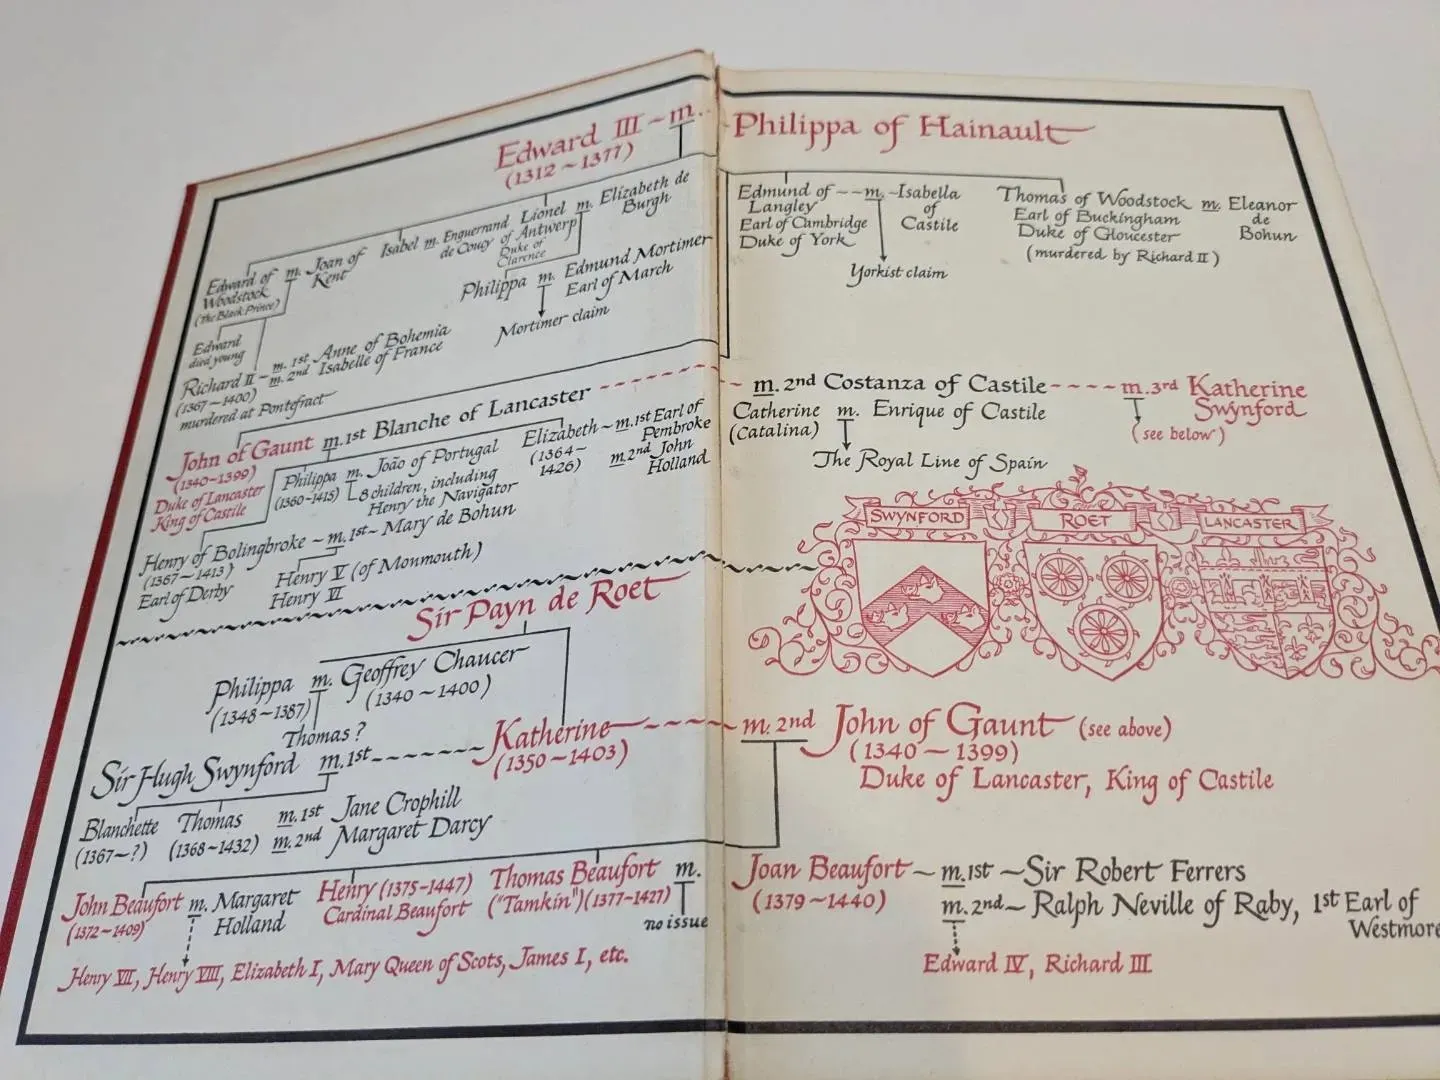 Edward III ~ m. Philippa of Hainault
(1312 ~ 1377)
Edward of Woodstock (the Black Prince) m. Joan of Kent
Isabel m. Enguerrand de Coucy
Lionel of Antwerp Duke of Clarence m. Elizabeth de Burgh
Edmund of Langley Earl of Cambridge Duke of York ~~ m. ~ Isabella of Castile
Yorkist claim
Thomas of Woodstock Earl of Buckingham Duke of Gloucester m. Eleanor de Bohun
(murdered by Richard II)
Philippa m. Edmund Mortimer Earl of March
Mortimer claim
Edward died young
Richard II ~ m. 1st Anne of Bohemia
(1367 ~ 1400) m. 2nd Isabelle of France
murdered at Pontefract
John of Gaunt m. 1st Blanche of Lancaster m. 2nd Costanza of Castile m. 3rd Katherine Swynford
(1340~1399)
Duke of Lancaster
King of Castile
(see below)
Philippa m. João of Portugal
(1360~1415) 8 children, including
Henry the Navigator
Elizabeth ~ m. 1st Earl of Pembroke
(1364~1426) m. 2nd John Holland
Catherine m. Enrique of Castile
(Catalina)
The Royal Line of Spain
Henry of Bolingbroke ~ m. 1st ~ Mary de Bohun
(1367~1413)
Earl of Derby
Henry V (of Monmouth)
Henry VI
SWYNFORD
ROET
LANCASTER
Sir Payn de Roet
Philippa m. Geoffrey Chaucer
(1348~1387) (1340~1400)
Thomas?
Sir Hugh Swynford m. 1st Katherine m. 2nd John of Gaunt (see above)
(1350~1403) (1340~1399)
Duke of Lancaster, King of Castile
Blanchette Thomas m. 1st Jane Crophill
(1367~?) (1368~1432) m. 2nd Margaret Darcy
John Beaufort m. Margaret Holland
(1372~1409)
Henry (1375~1447)
Cardinal Beaufort
Thomas Beaufort m.
("Tamkin") (1377~1427) no issue
Joan Beaufort ~ m. 1st ~ Sir Robert Ferrers
(1379~1440) m. 2nd ~ Ralph Neville of Raby, 1st Earl of
Henry VII, Henry VIII, Elizabeth I, Mary Queen of Scots, James I, etc.
Edward IV, Richard III